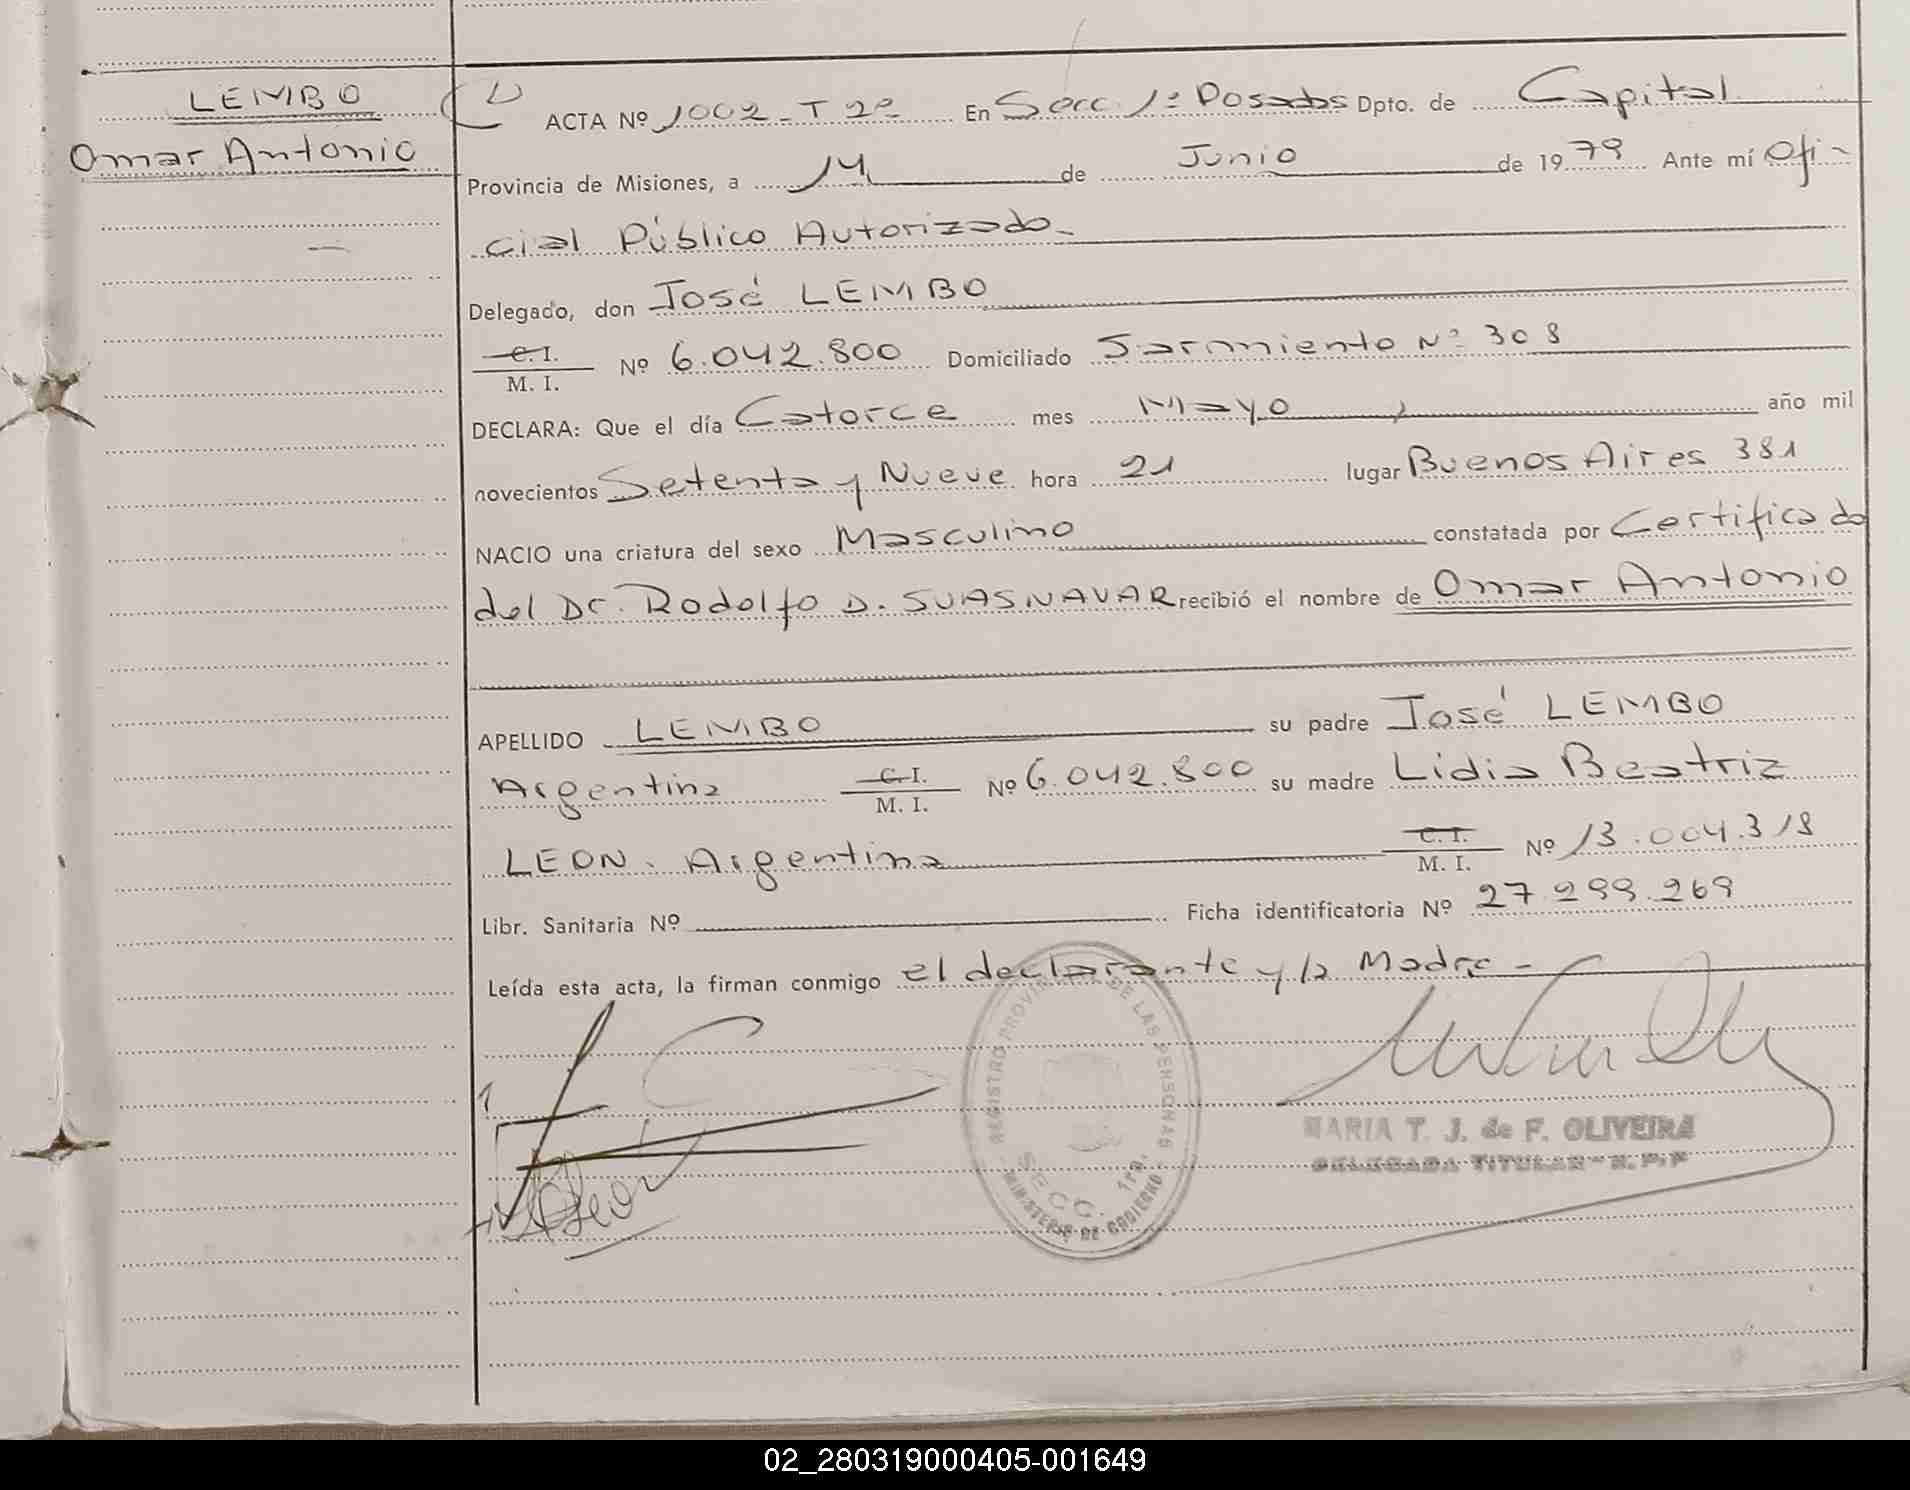 LEMBO
Omar Antonio
ACTA Nº 1002 - T 2º En Secc. 1ª Posadas Dpto. de Capital
Provincia de Misiones, a 14 de Junio de 1979 Ante mí Ofi-
cial Público Autorizado.
Delegado, don José LEMBO
C. I.
M. I. Nº 6.042.800 Domiciliado Sarmiento Nº 308
DECLARA: Que el día Catorce mes Mayo año mil
novecientos Setenta y Nueve hora 21 lugar Buenos Aires 381
NACIO una criatura del sexo Masculino constatada por Certificado
del Dr. Rodolfo D. SUASNAVAR recibió el nombre de Omar Antonio
APELLIDO LEMBO su padre José LEMBO
Argentina C. I. M. I. Nº 6.042.800 su madre Lidia Beatriz
LEON. Argentina C. I. M. I. Nº 13.004.318
Libr. Sanitaria Nº Ficha identificatoria Nº 27.299.269
Leída esta acta, la firman conmigo el declarante y la Madre -
REGISTRO PROVINCIAL DE LAS PERSONAS
SECC. 1ra.
MINISTERIO DE GOBIERNO
MARIA T. J. de F. OLIVEIRA
DELEGADA TITULAR - R. P. P
02_280319000405-001649